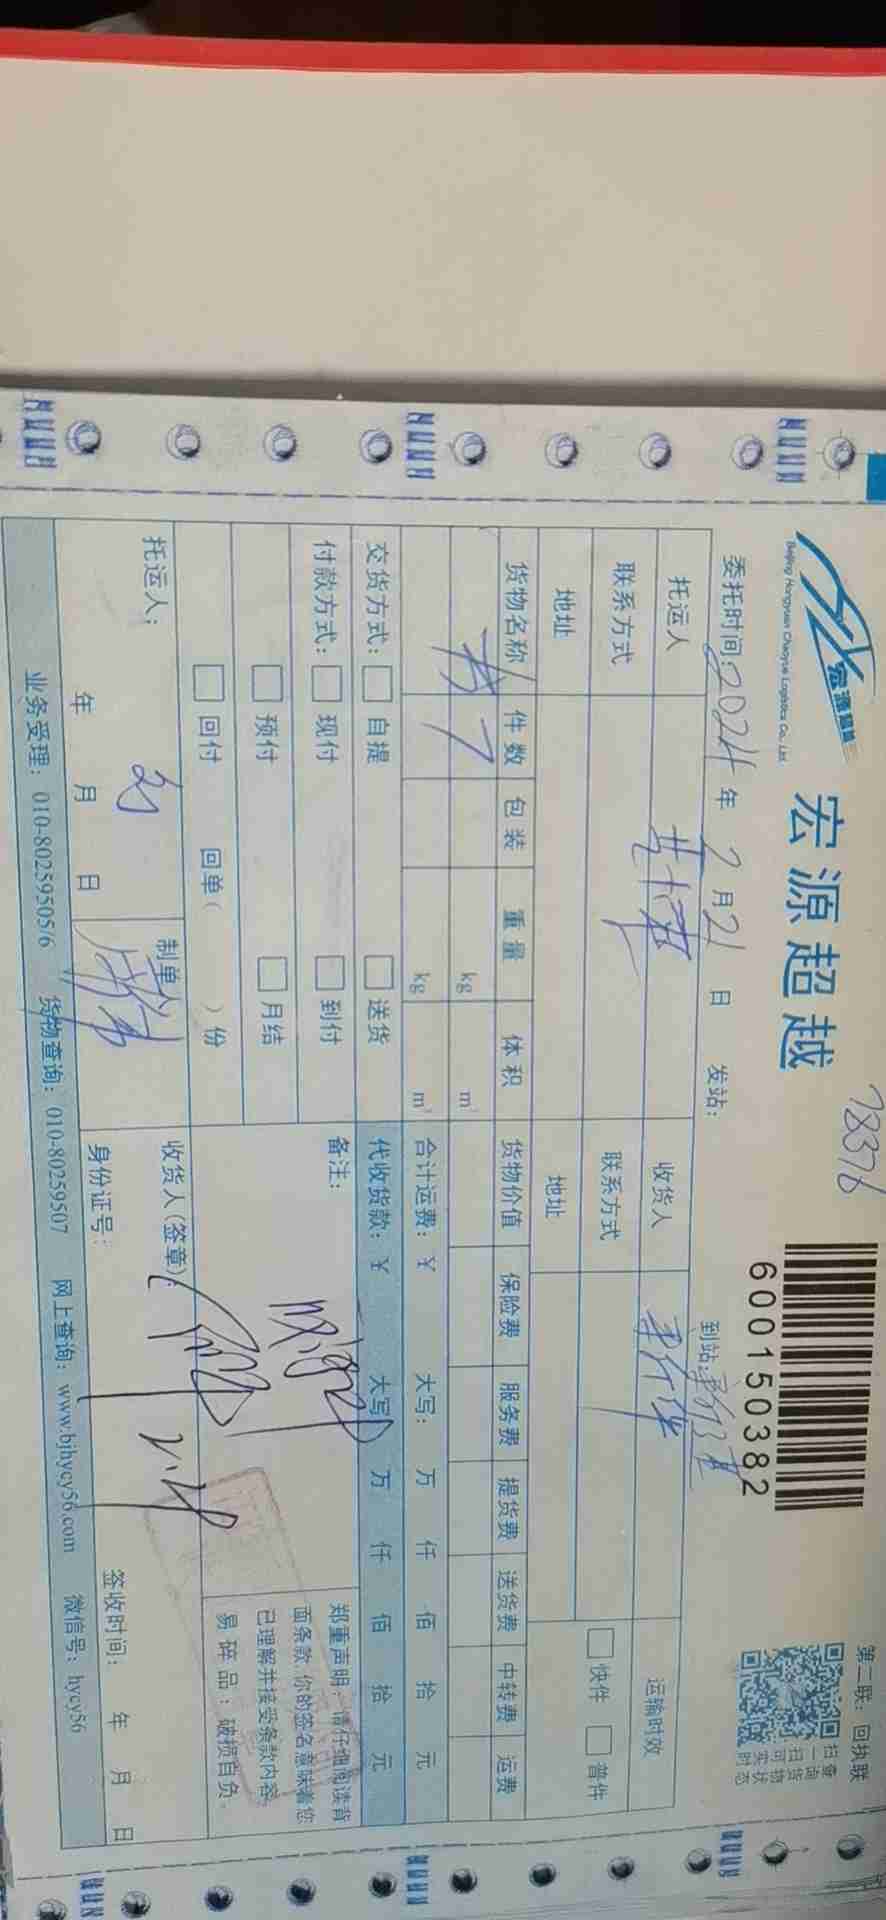 78376
第二联：回执联
宏源超越
Beijing Hongyuan Chaoyue Logistics Co., Ltd
宏源超越
6001500382
扫一扫 查询货物实时状态
委托时间：2024年2月21日 发站： 到站：
托运人 收货人 运输时效
联系方式 联系方式 快件 普件
地址 地址
货物名称 件数 包装 重量 体积 货物价值 保险费 服务费 提货费 送货费 中转费 运费
书 7 kg m³
kg m³ 合计运费：¥ 大写： 万 仟 佰 拾 元
交货方式： 自提 送货 代收货款：¥ 大写 万 仟 佰 拾 元
付款方式： 现付 到付 备注：
预付 月结
回付 回单（ ）份
郑重声明：请仔细阅读背
面条款，你的签名意味着您
已理解并接受条款内容。
易碎品：破损自负。
托运人： 制单人 收货人（签章）：
年 月 日 身份证号： 签收时间： 年 月 日
业务受理：010-80259505/6 货物查询：010-80259507 网上查询：www.bjhycy56.com 微信号：hycy56